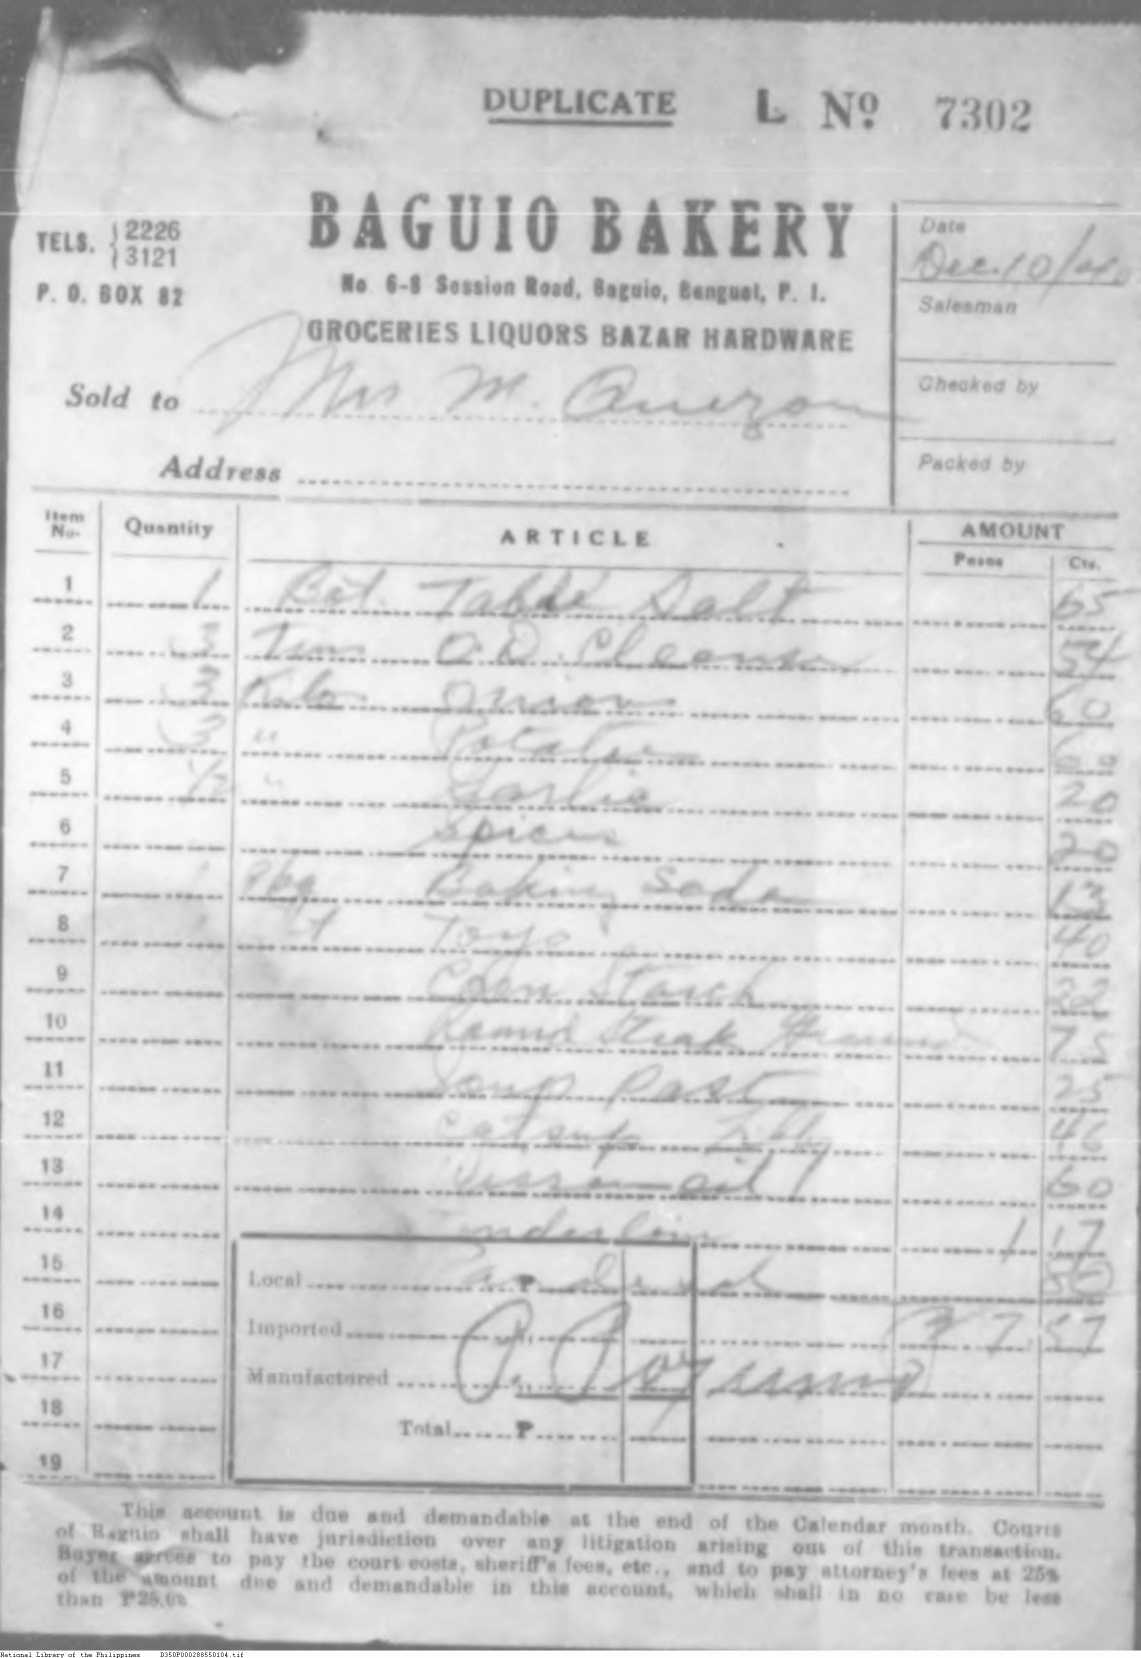 DUPLICATE L Nº 7302
BAGUIO BAKERY
TELS. 2226
3121
P. O. BOX 82
No 6-8 Session Road, Baguio, Benguet, P. I.
GROCERIES LIQUORS BAZAR HARDWARE
Date
Dec. 10/40
Salesman
Checked by
Packed by
Sold to Mrs M. Quezon
Address
Item No. Quantity ARTICLE AMOUNT
Pesos Cts.
1 1 Bot. Table Salt 65
2 3 Tins O.D. Cleanser 54
3 3 Kilos Onions 60
4 3 " Potatoes 60
5 1/2 " Garlic 20
6 Spices 20
7 1 Pkg Baking Soda 13
8 Toyo 40
9 Corn Starch 22
10 Round Steak 75
11 Soup Past 25
12 Catsup 46
13 Wesson oil 60
14 Tenderloin 1 17
15 Local P 50
16 Imported 7.57
17 Manufactured
18 Total P
19
This account is due and demandable at the end of the Calendar month. Courts
of Baguio shall have jurisdiction over any litigation arising out of this transaction.
Buyer agrees to pay the court costs, sheriff's fees, etc., and to pay attorney's fees at 25%
of the amount due and demandable in this account, which shall in no case be less
than ₱25.00
National Library of the Philippines D350P000288550104.tif